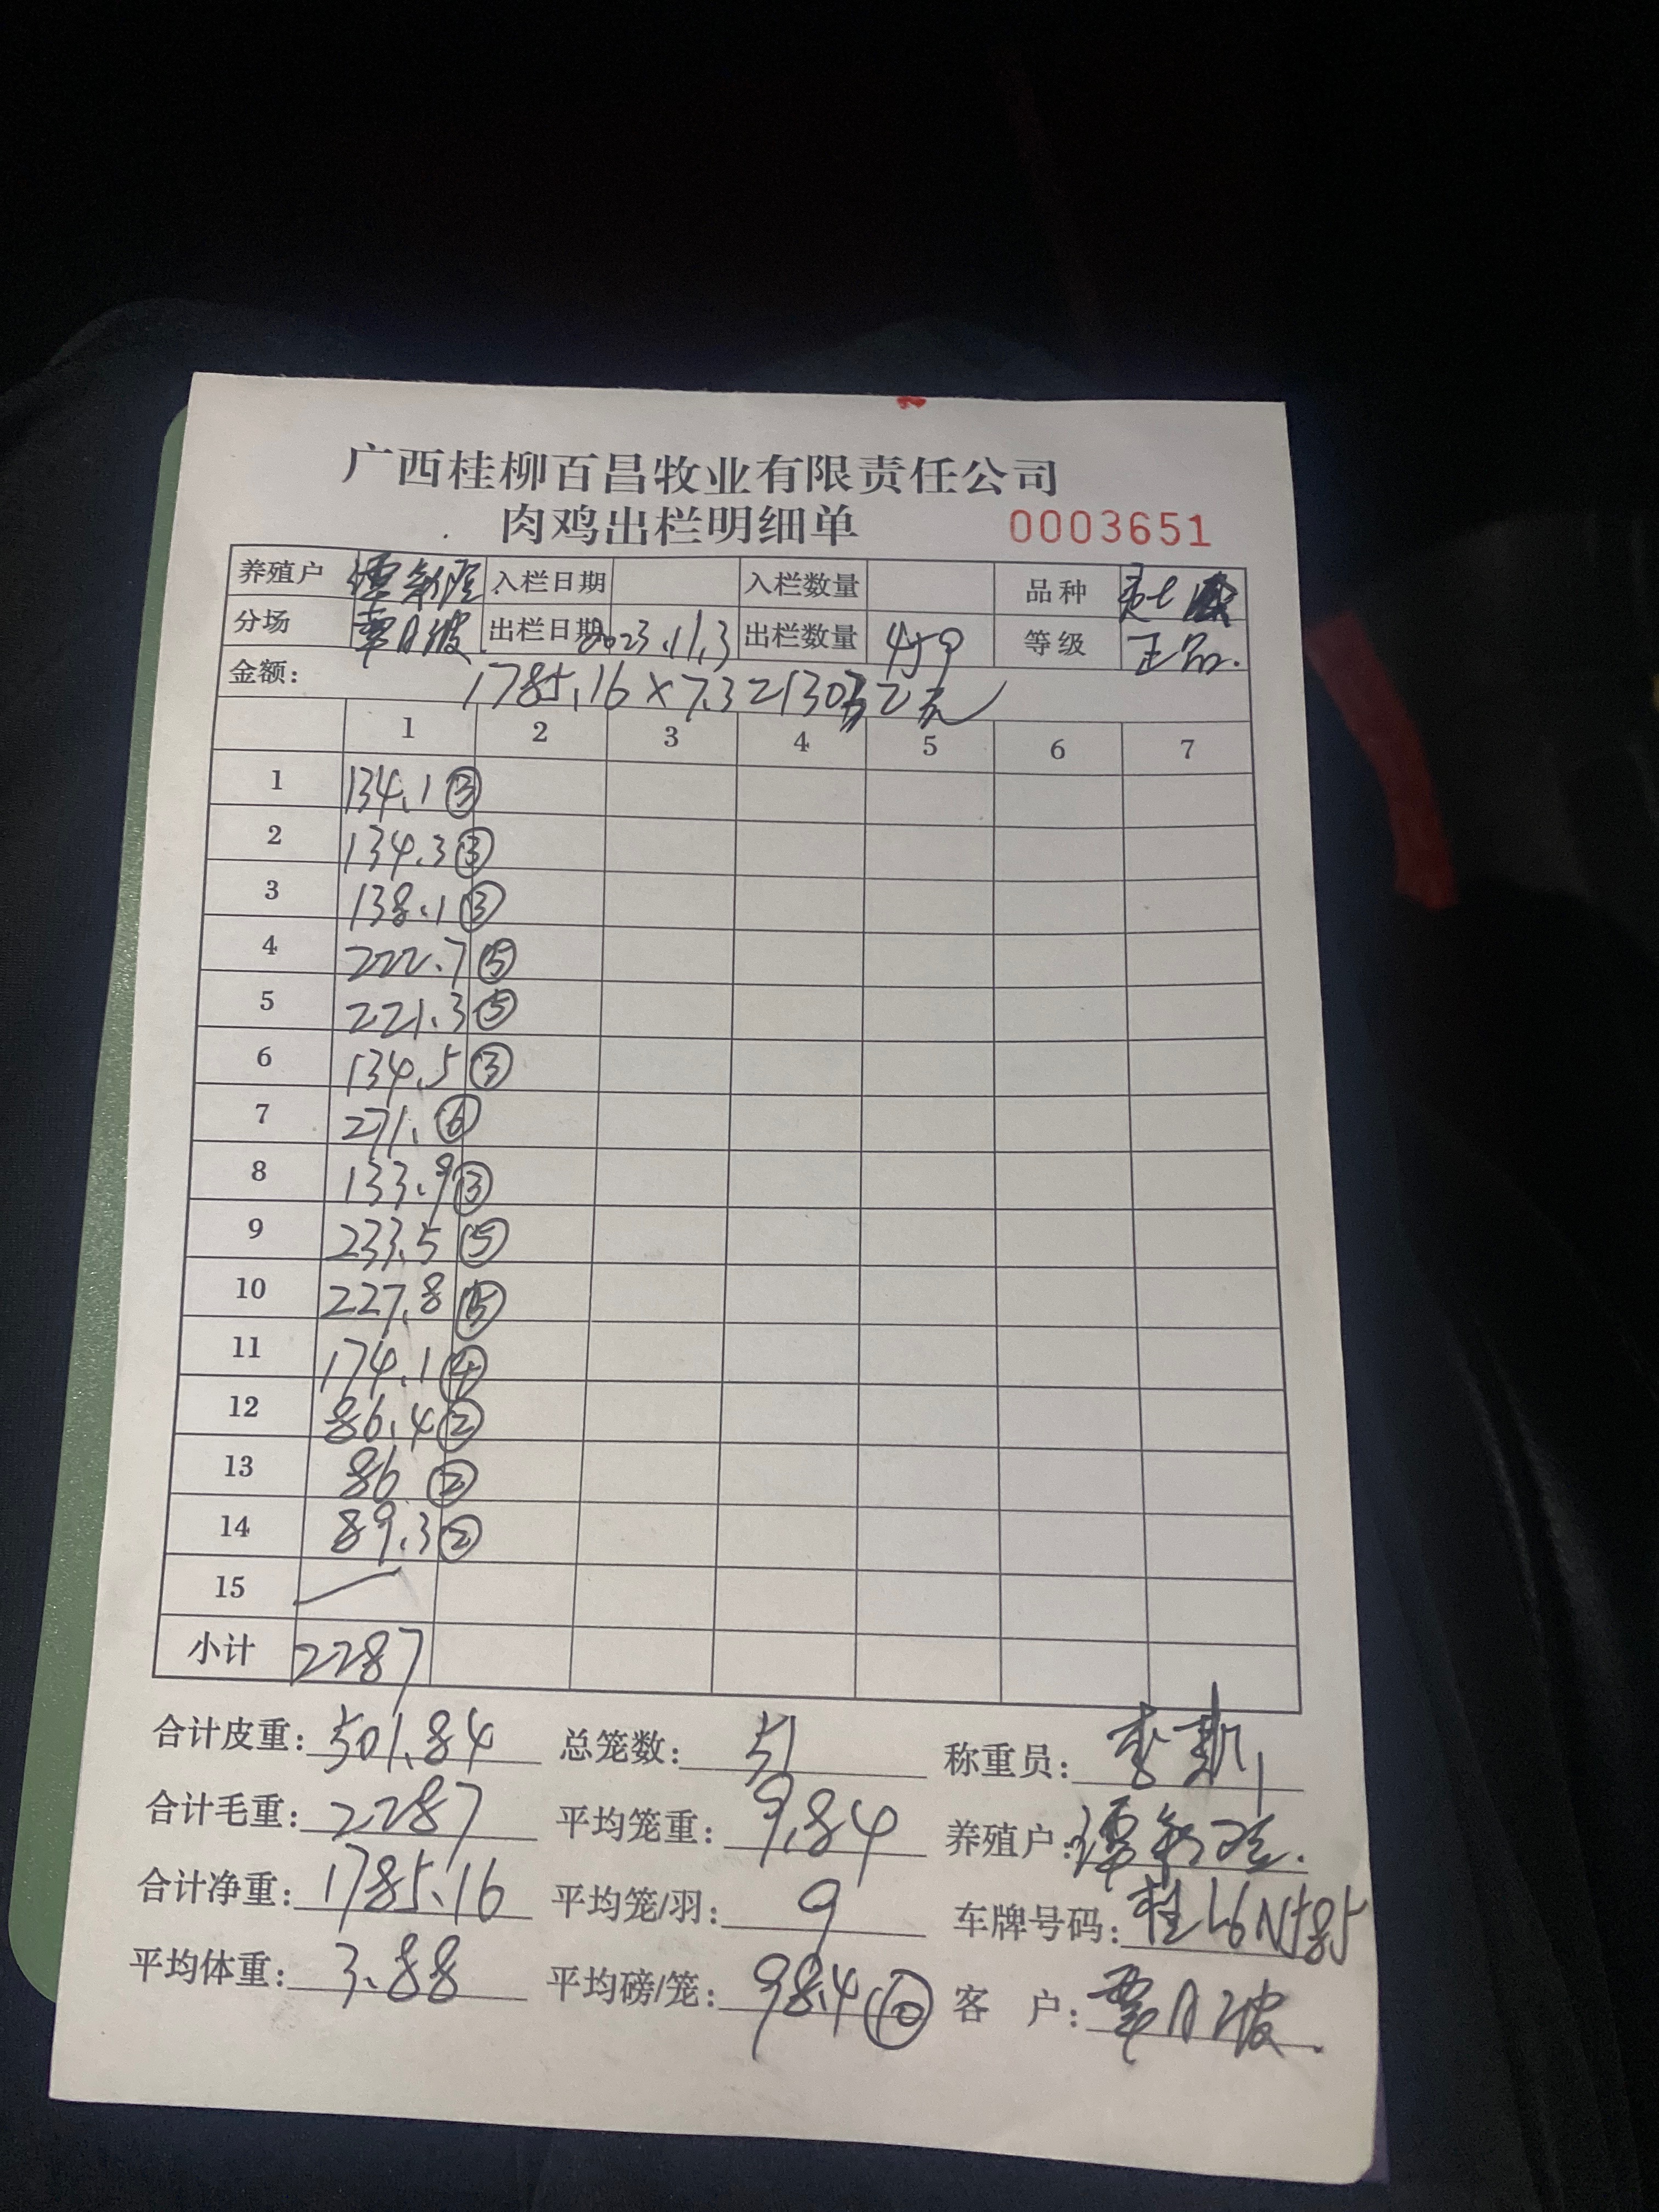 广西桂柳百昌牧业有限责任公司
肉鸡出栏明细单 0003651
养殖户 入栏日期 入栏数量 品种
分场 覃月波 出栏日期 2023.11.3 出栏数量 459 等级 正品.
金额: 1785.16×7.3=130 元
1 2 3 4 5 6 7
1 134.1 ③
2 134.3 ③
3 138.1 ③
4 222.7 ⑤
5 221.3 ⑤
6 134.5 ③
7 271. ⑥
8 133.9 ③
9 233.5 ⑤
10 227.8 ⑤
11 174.1 ④
12 86.4 ②
13 86 ②
14 89.3 ②
15
小计 2287
合计皮重: 501.84 总笼数: 51 称重员: 李
合计毛重: 2287 平均笼重: 9.84 养殖户:
合计净重: 1785.16 平均笼/羽: 9 车牌号码: 桂L6N585
平均体重: 3.88 平均磅/笼: 98.4 ⑩ 客 户: 覃月波.